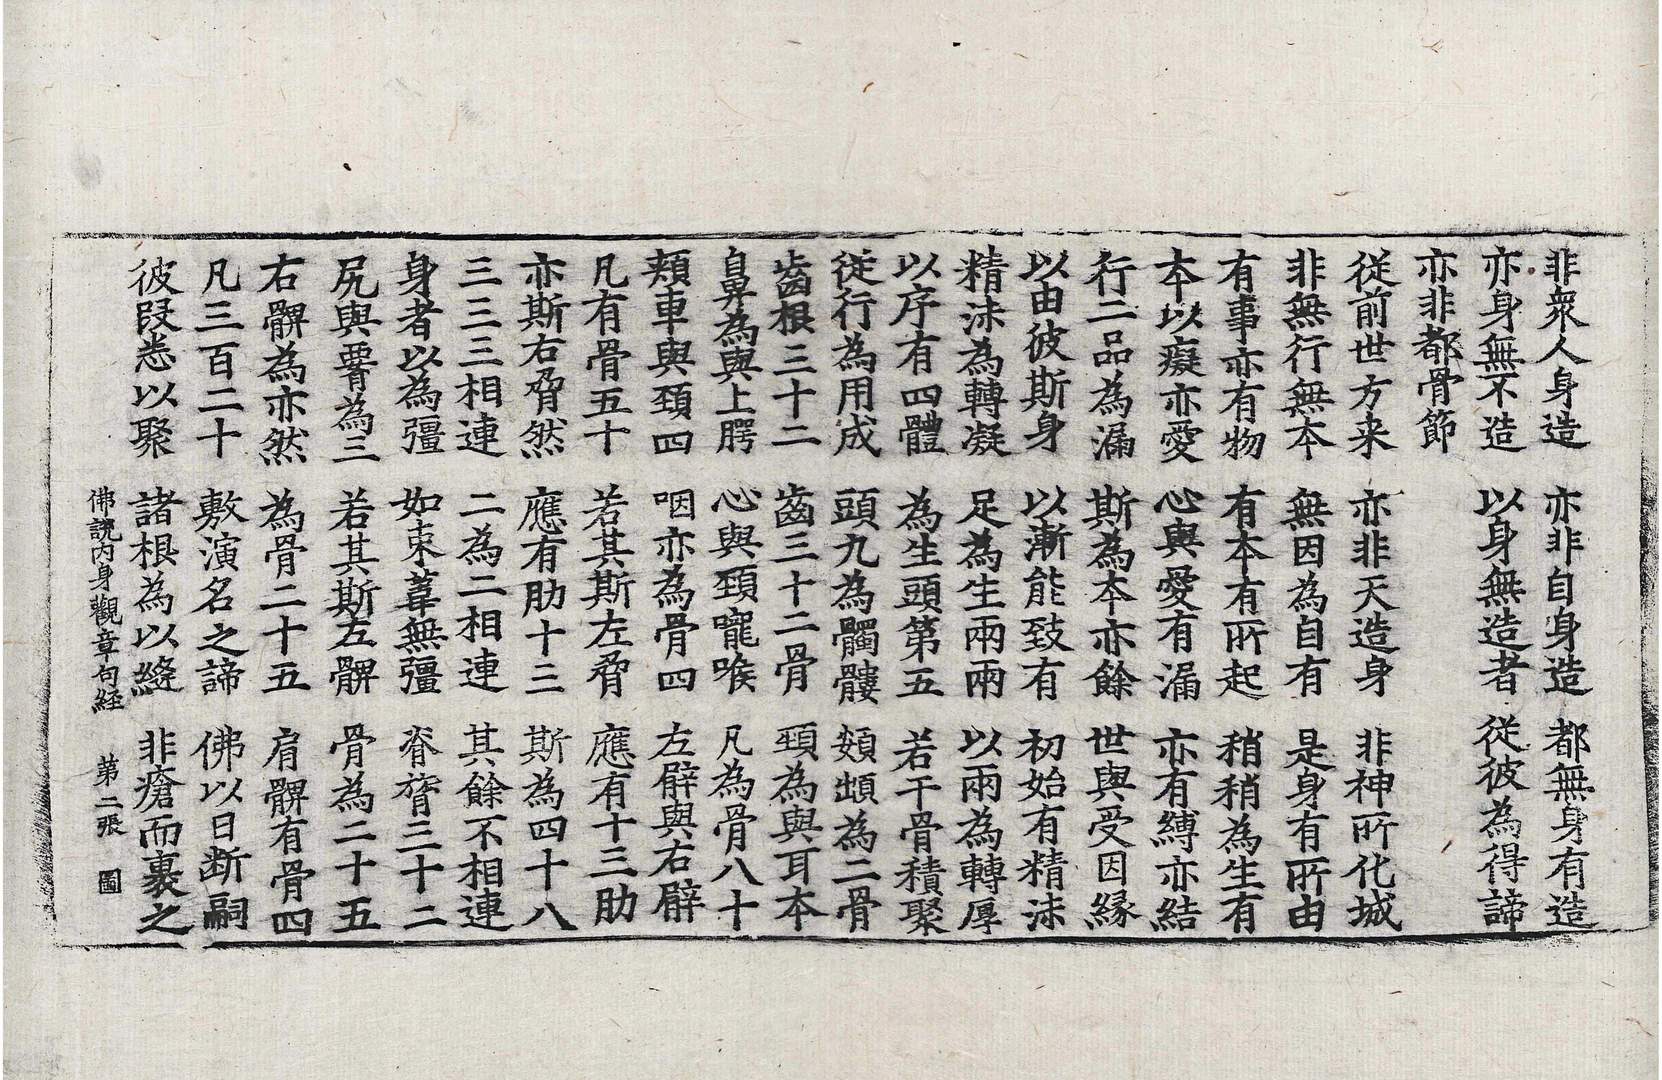 非衆人身造　亦非自身造　都無身有造
亦身無不造　以身無造者　従彼為得諦
亦非都骨節
従前世方来　亦非天造身　非神所化城
非無行無本　無因為自有　是身有所由
有事亦有物　有本有所起　稍稍為生有
本以癡亦愛　心與愛有漏　亦有縛亦結
行二品為漏　斯為本亦餘　世與受因緣
以由彼斯身　以漸能致有　初始有精沫
精沫為轉凝　足為生兩兩　以兩為轉厚
以序有四體　為生頭第五　若干骨積聚
従行為用成　頭九為髑髏　頰𩑶為二骨
齒根三十二　齒三十二骨　頸為與耳本
鼻為與上腭　心與頸嚨喉　凡為骨八十
頰車與頚四　咽亦為骨四　左臂與右臂
凡有骨五十　若其斯左脅　應有十三肋
亦斯右脅然　應有肋十三　斯為四十八
三三三相連　二為二相連　其餘不相連
身者以為彊　如束葦無彊　脊膂三十二
尻與署為三　若其斯左髀　骨為二十五
右髀為亦然　為骨二十五　肩髀有骨四
凡三百二十　敷演名之諦　佛以日斷嗣
彼段悉以聚　諸根為以縫　非瘡而裹之
佛說內身觀章句経　第二張　圖